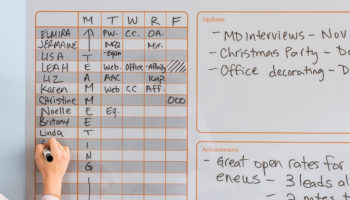 M T W R F
ELMIRA PW. CC. OA.
JERMAINE MED Mir.
LISA
LEAH Web. Office Affinity
LIZ AAC
Karen Web CC Aff.
Christine OOO
Noelle Eq.
Britany
Linda
MEETING
Updates
- MD Interviews - Nov
- Christmas Party -
- Office decorating - D
Achievements
- Great open rates for
enews - 3 leads